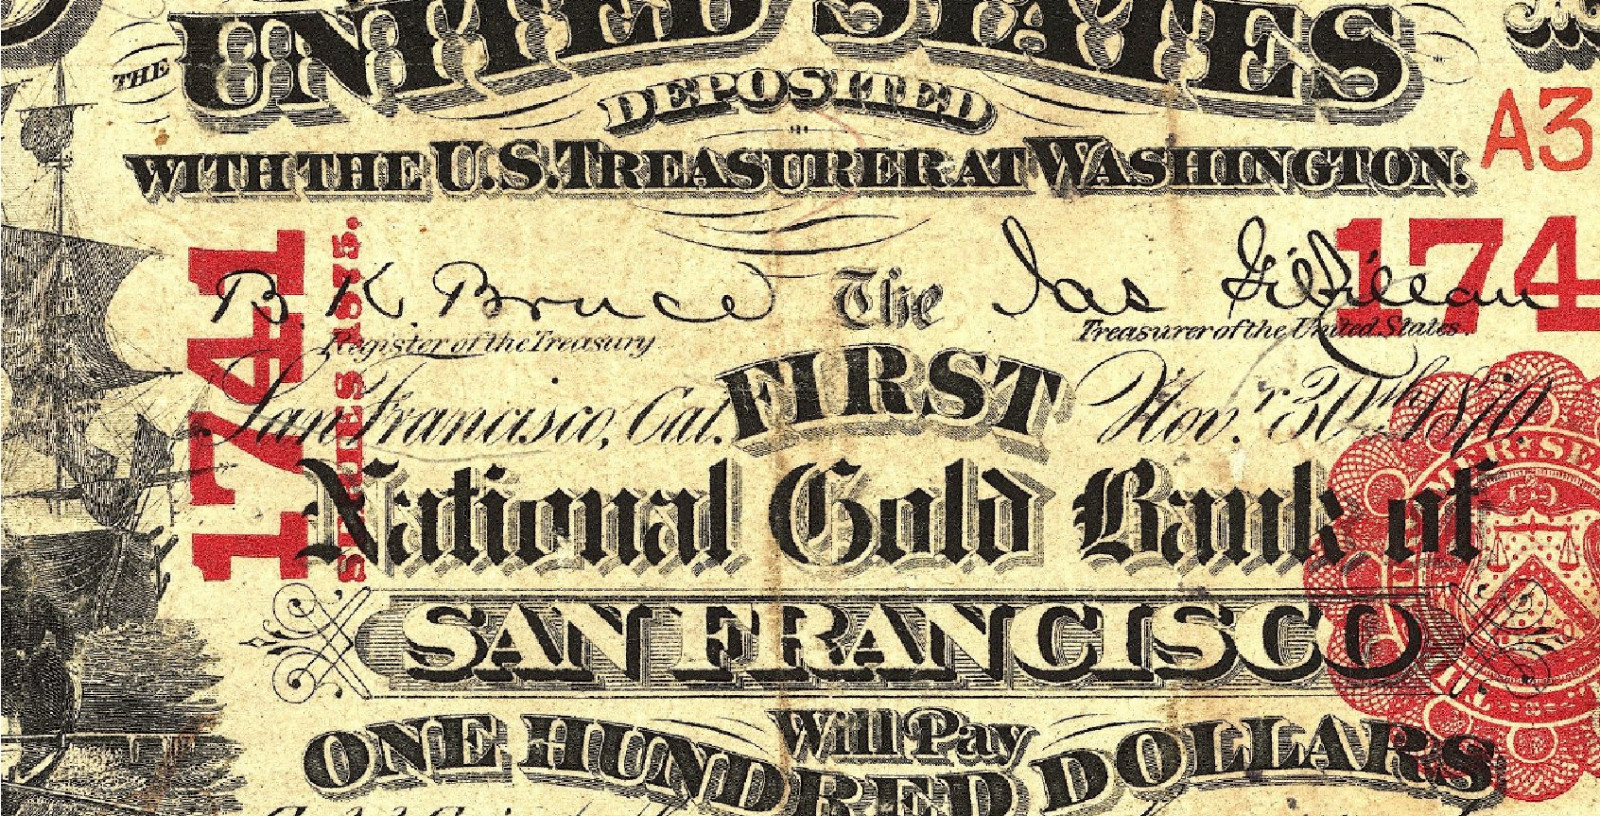 UNITED STATES
THE
DEPOSITED
WITH THE U.S. TREASURER AT WASHINGTON.
A3
1741
SERIES 1875.
174
B. K. Bruce
Register of the Treasury
The
Jas Gilfillan
Treasurer of the United States.
San Francisco, Cal.
FIRST
Nov.r 30th 1870
National Gold Bank of
SAN FRANCISCO
Will Pay
ONE HUNDRED DOLLARS